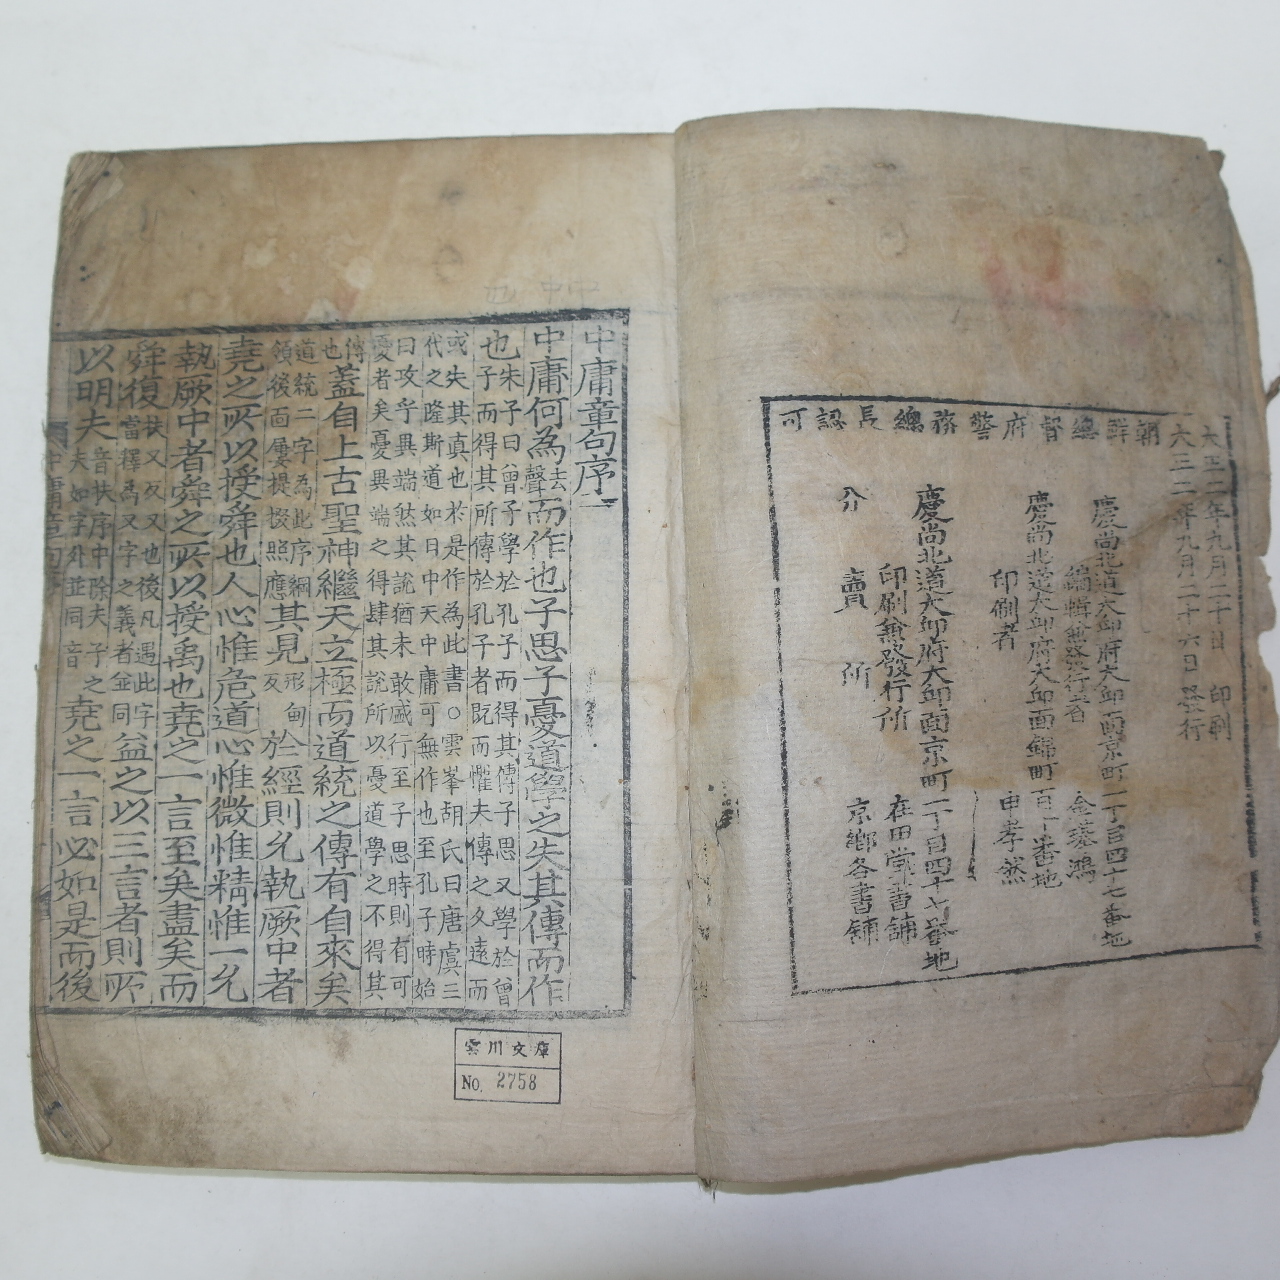 朝鮮總督府警務總長認可
大正二年九月二十日 印刷
大正二年九月二十六日 發行
慶尚北道大邱府大邱面京町一丁目四十七番地
編輯兼發行者 金璂鴻
慶尚北道大邱府大邱面錦町百十番地
印刷者 申孝然
慶尚北道大邱府大邱面京町一丁目四十七番地
印刷兼發行所 在田堂書鋪
分賣所 京鄉各書鋪
中庸章句序
中庸何為去聲而作也子思子憂道學之失其傳而作
也朱子曰曾子學於孔子而得其傳子思又學於曾
子而得其所傳於孔子者既而懼夫傳之久遠而
或失其真也於是作為此書○雲峯胡氏曰唐虞三
代之隆斯道如日中天中庸可無作也至孔子時始
曰攻乎異端然其說猶未敢盛行至子思時則有可
憂者矣憂異端之得肆其說所以憂道學之不得其
傳也蓋自上古聖神繼天立極而道統之傳有自來矣
道統二字為此序綱
領後面屢提掇照應其見形甸反於經則允執厥中者
堯之所以授舜也人心惟危道心惟微惟精惟一允
執厥中者舜之所以授禹也堯之一言至矣盡矣而
舜復扶又反又也後凡遇此字
當釋為又字之義者並同益之以三言者則所
以明夫音扶序中除夫子之
夫如字外並同音堯之一言必如是而後
中庸章句序
雲川文庫
No. 2758